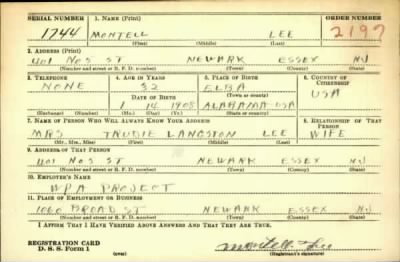 SERIAL NUMBER 1. NAME (Print) ORDER NUMBER
1744 MONTELL LEE 2197
(First) (Middle) (Last)
2. ADDRESS (Print)
401 NO 5 ST NEWARK ESSEX NJ
(Number and street or R. F. D. number) (Town) (County) (State)
3. TELEPHONE 4. AGE IN YEARS 5. PLACE OF BIRTH 6. COUNTRY OF CITIZENSHIP
NONE 32 ELBA USA
DATE OF BIRTH (Town or county)
1 14 1908 ALABAMA USA
(Exchange) (Number) (Mo.) (Day) (Yr.) (State or country)
7. NAME OF PERSON WHO WILL ALWAYS KNOW YOUR ADDRESS 8. RELATIONSHIP OF THAT PERSON
MRS TRUDIE LANGSTON LEE WIFE
(Mr., Mrs., Miss) (First) (Middle) (Last)
9. ADDRESS OF THAT PERSON
401 NO 5 ST NEWARK ESSEX NJ
(Number and street or R. F. D. number) (Town) (County) (State)
10. EMPLOYER'S NAME
WPA PROJECT
11. PLACE OF EMPLOYMENT OR BUSINESS
1060 BROAD ST NEWARK ESSEX NJ
(Number and street or R. F. D. number) (Town) (County) (State)
I AFFIRM THAT I HAVE VERIFIED ABOVE ANSWERS AND THAT THEY ARE TRUE.
REGISTRATION CARD
D. S. S. Form 1 (over) Montell Lee
(Registrant's signature)